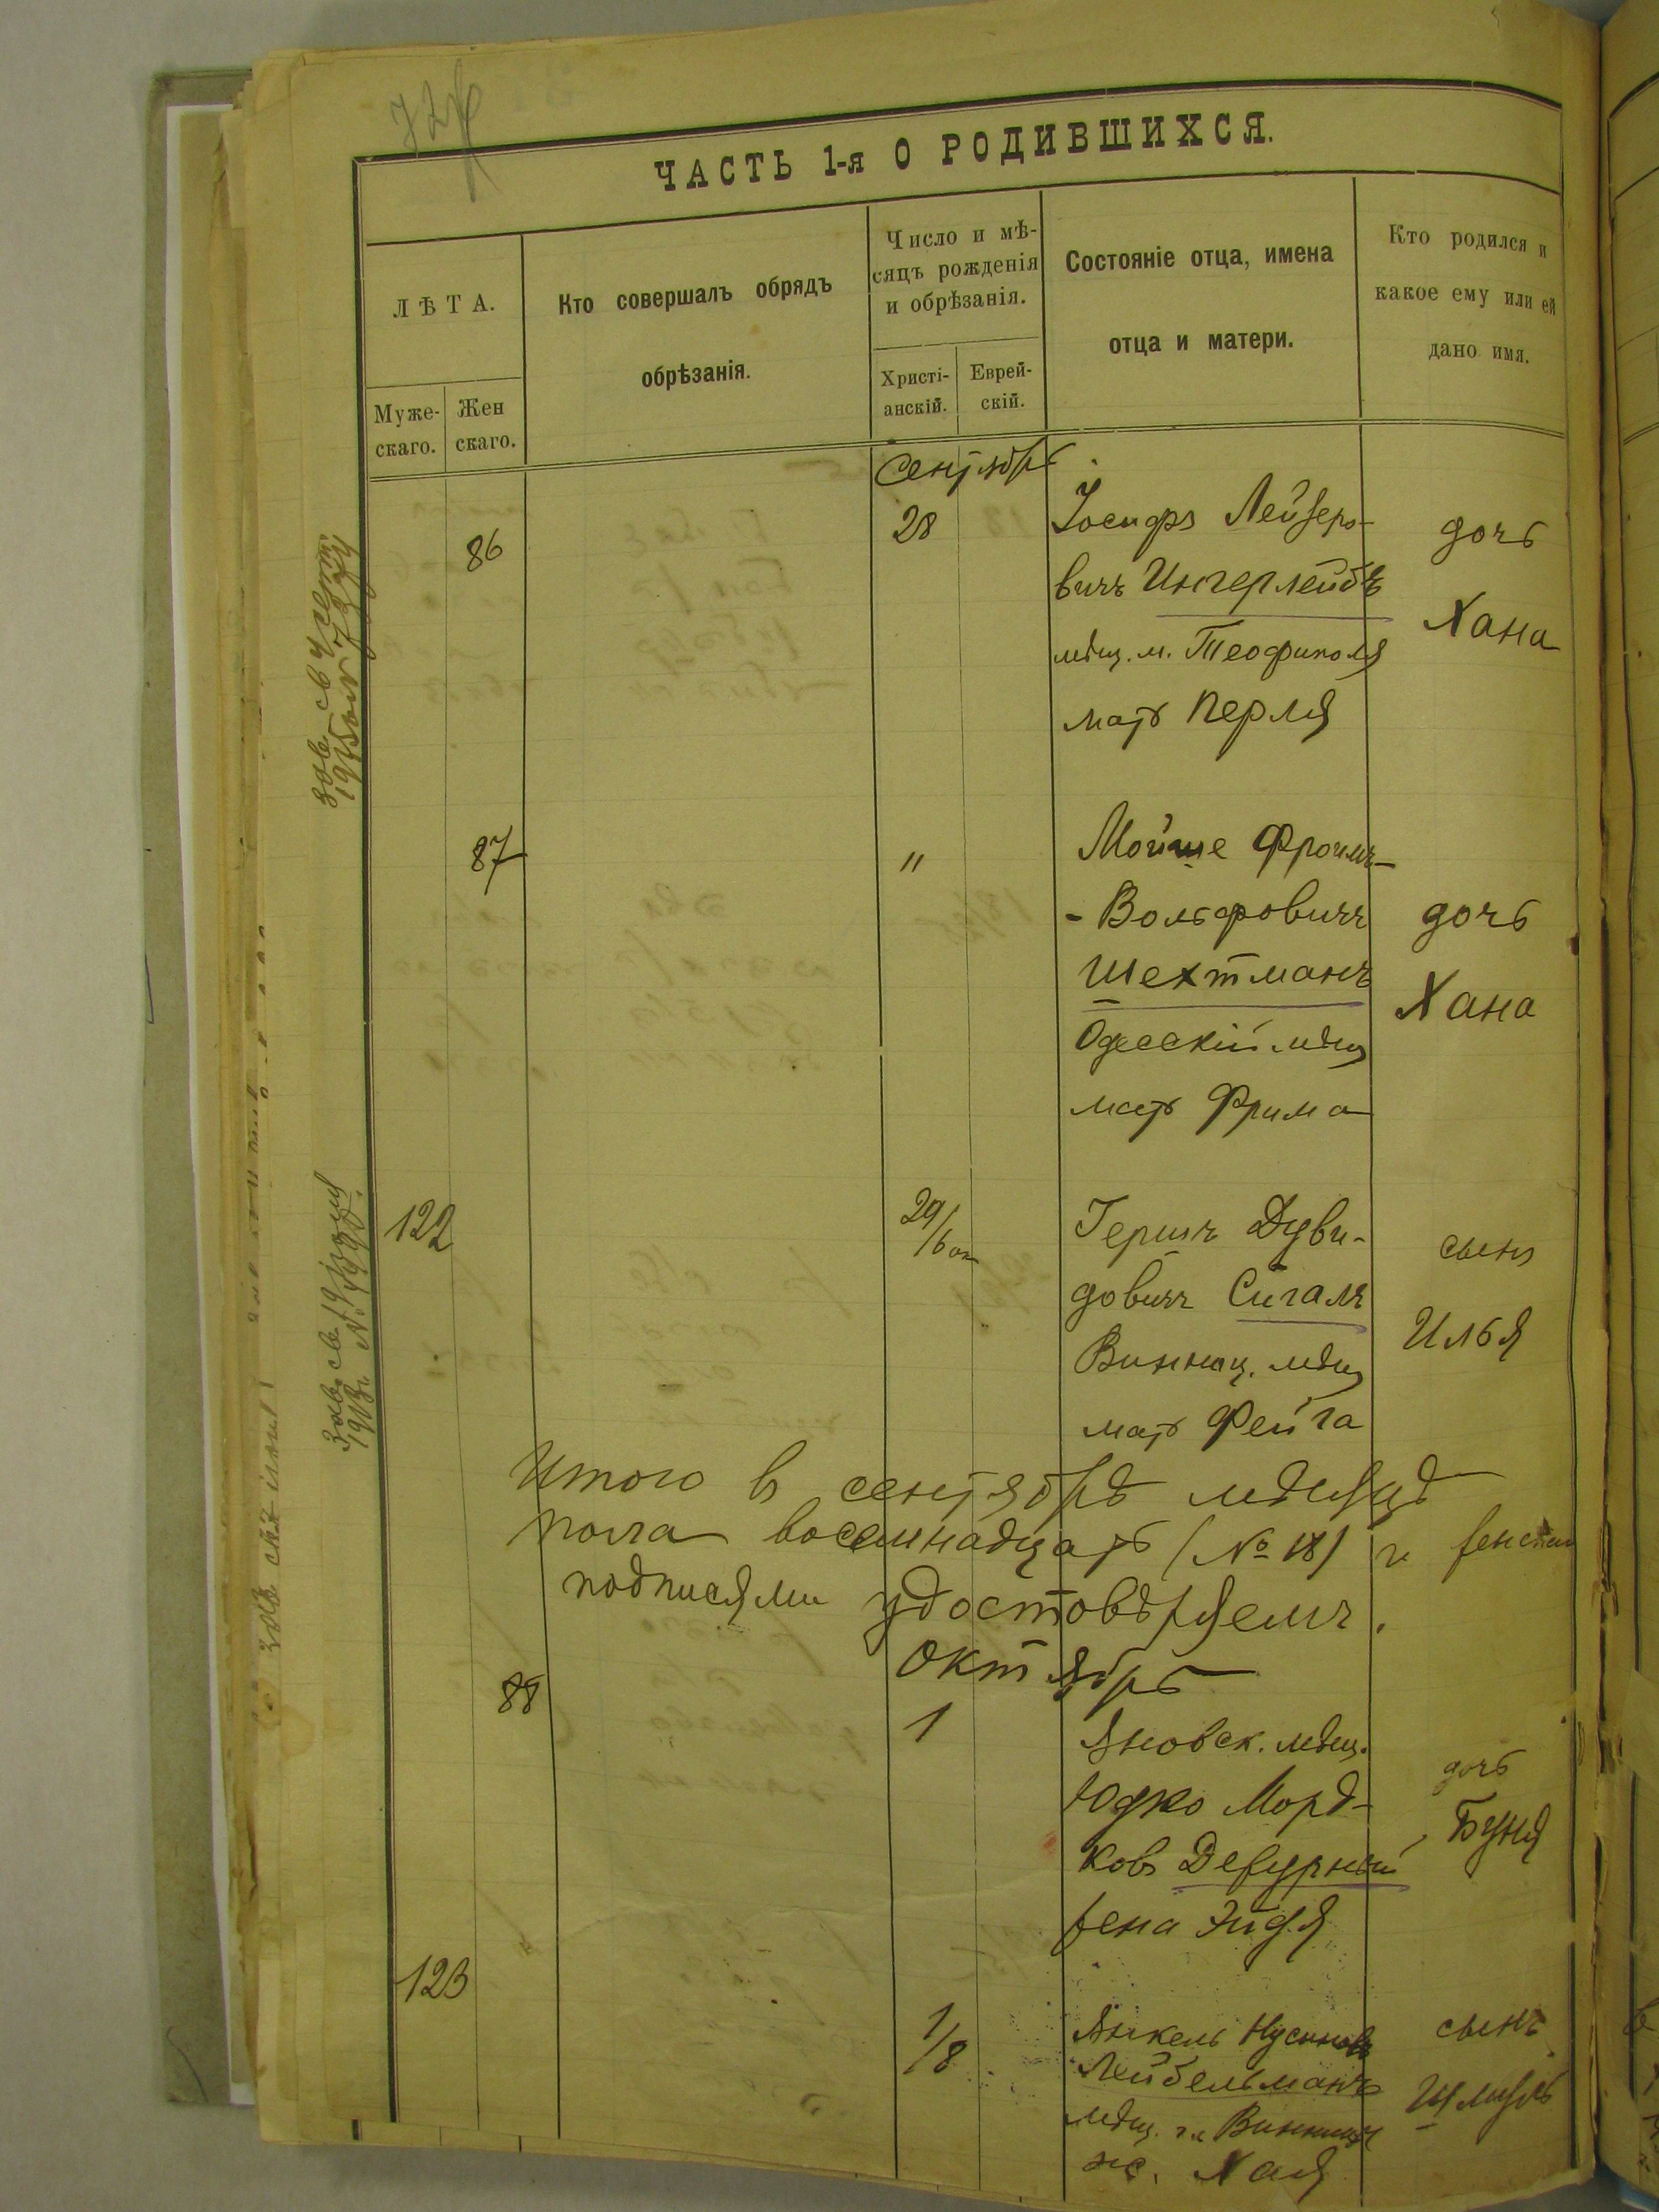 ЧАСТЬ 1-я О РОДИВШИХСЯ.
ЛѢТА.
Муже-
скаго.
Жен
скаго.
Кто совершалъ обрядъ
обрѣзанія.
Число и мѣ-
сяцъ рожденія
и обрѣзанія.
Христі-
анскій.
Еврей-
скій.
Состояніе отца, имена
отца и матери.
Кто родился и
какое ему или ей
дано имя.
Сентябрь
86
28
Іосифъ Лейзеро-
вичъ Ингерлейбъ
мѣщ. м. Теофиполя
мать Перля
дочь
Хана
87
"
Мойше Фроимъ-
-Вольфовичъ
Шехтманъ
Одесскій мѣщ
мать Фрима
дочь
Хана
122
29/6 ок
Гершъ Дуви-
довичъ Сигалъ
Винниц. мѣщ
мать Фейга
сынъ
Илья
Итого в сентябрѣ мѣсяцѣ
пола восемнадцать (№ 18) и женскаго
подписями удостовѣряемъ.
Октябрь
88
1
Яновск. мѣщ.
Юдко Морд-
ковъ Дежурный
жена Эйдя
дочь
Буня
123
1/8
Янкель Нусиновъ
Лейбельманъ
мѣщ. г. Винницы
ж. Хая
сынъ
Шмуль